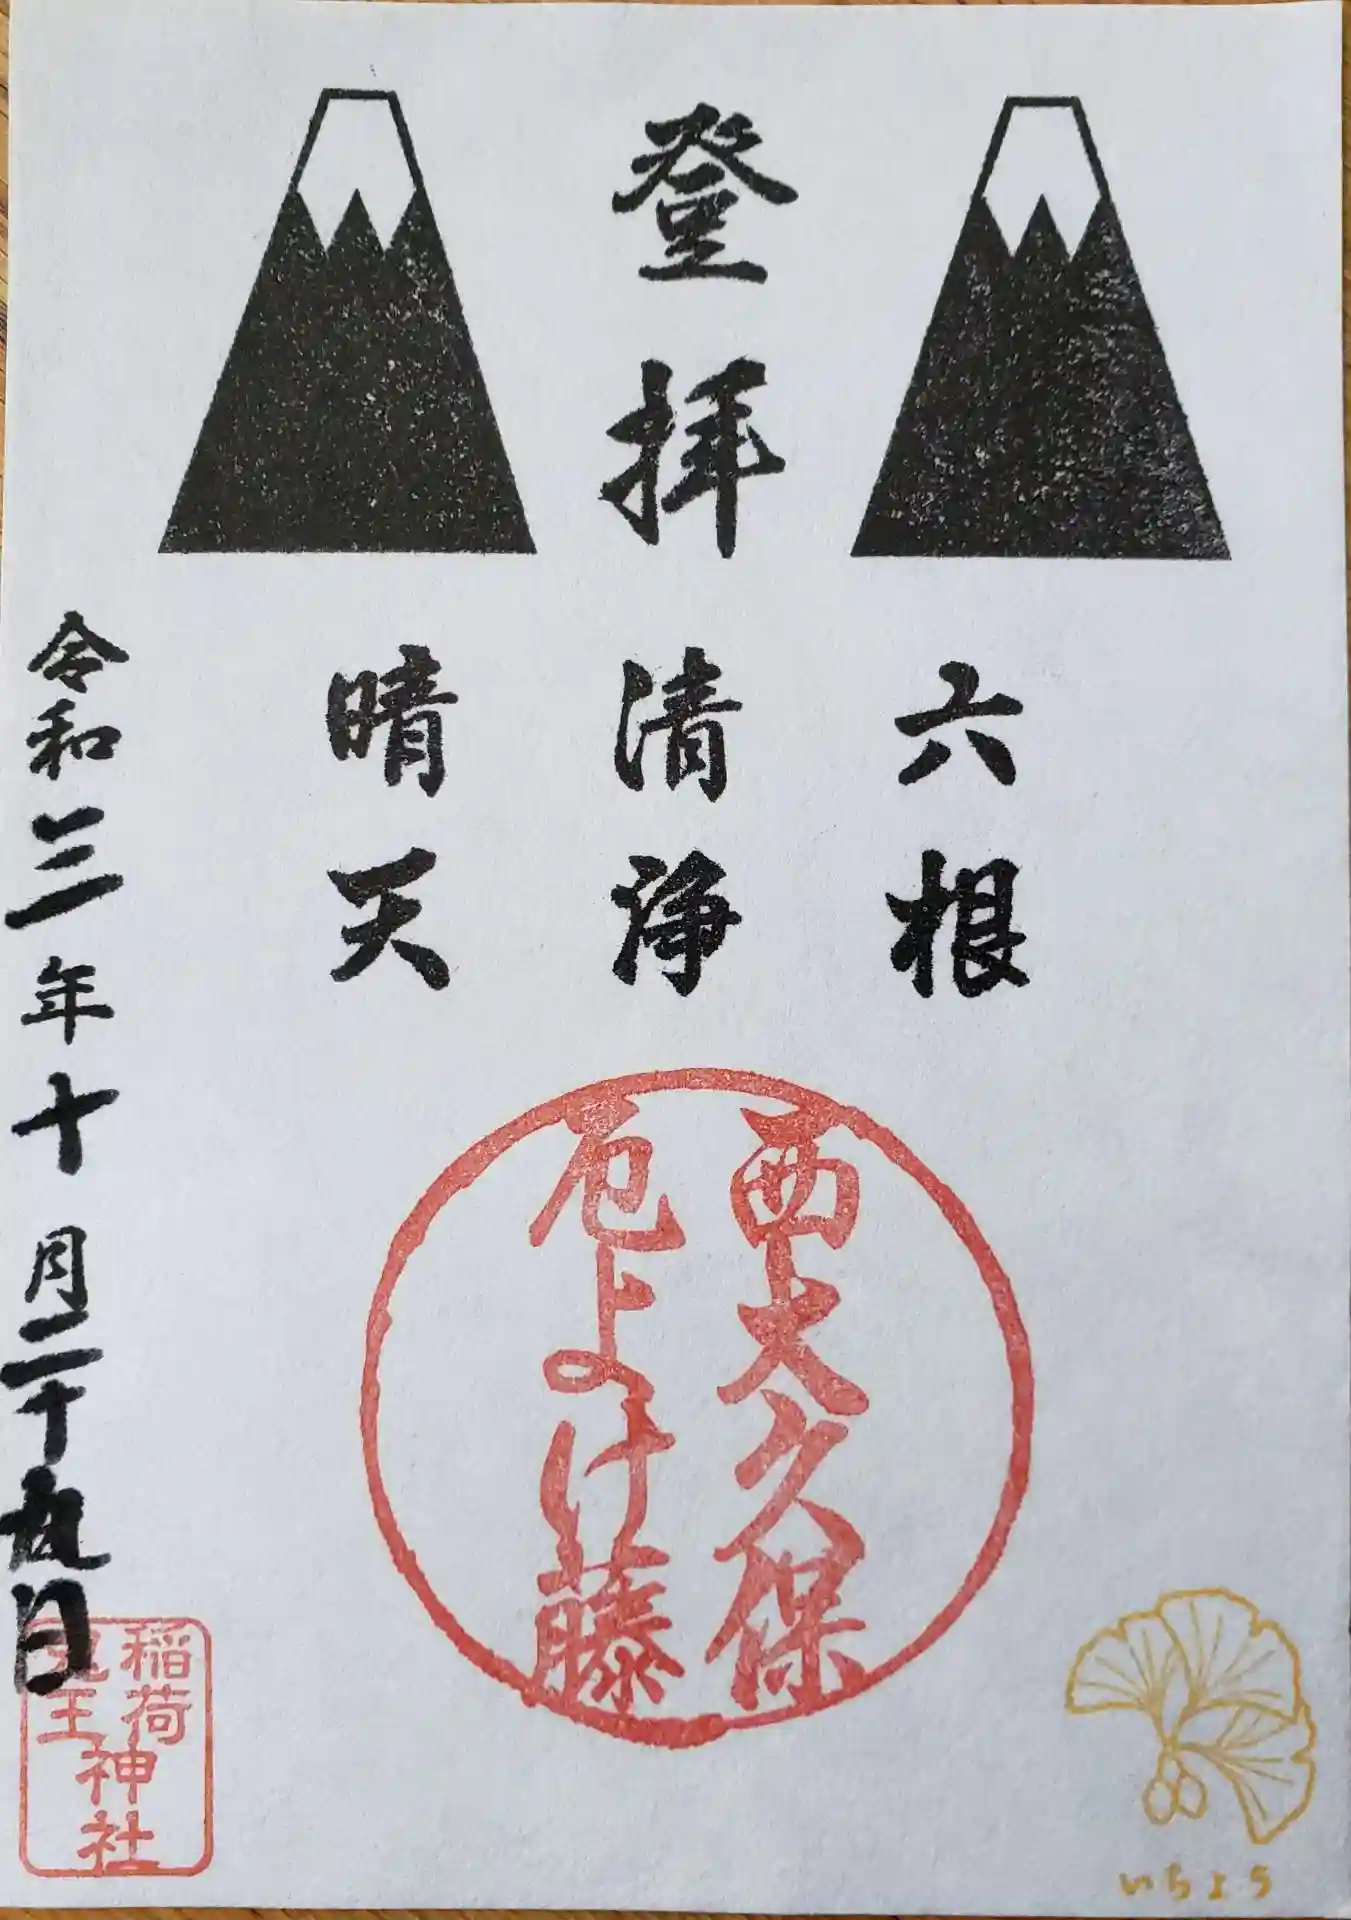 登拝
六根
清浄
晴天
令和三年十月二十九日
西大久保
厄よけ藤
稲荷
鬼王
神社
いちょう